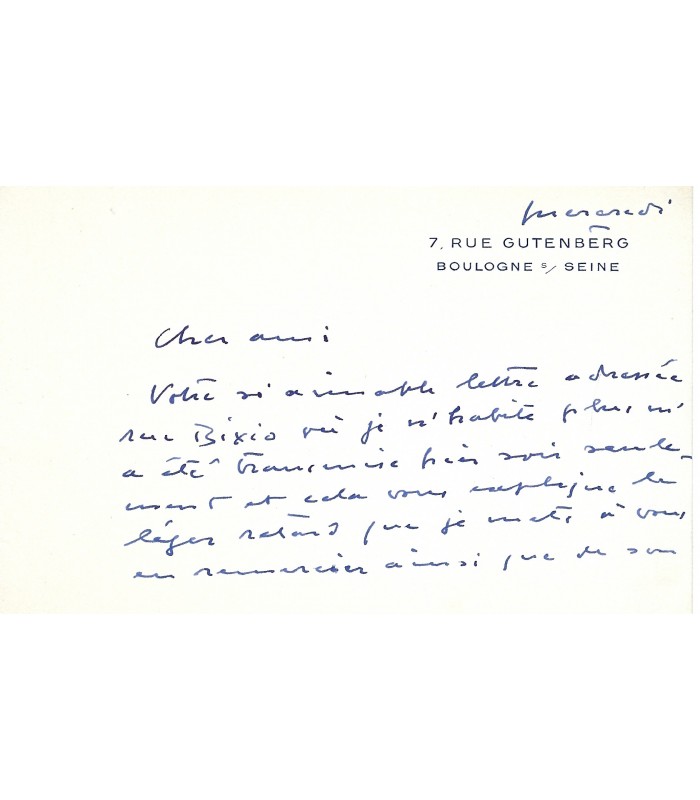 mercredi
7, RUE GUTENBERG
BOULOGNE s/ SEINE
Cher ami
Votre si aimable lettre adressée
rue Bixio où je n'habite plus m'
a été transmise hier soir seule-
ment et cela vous explique le
léger retard que je mets à vous
en remercier ainsi que de son